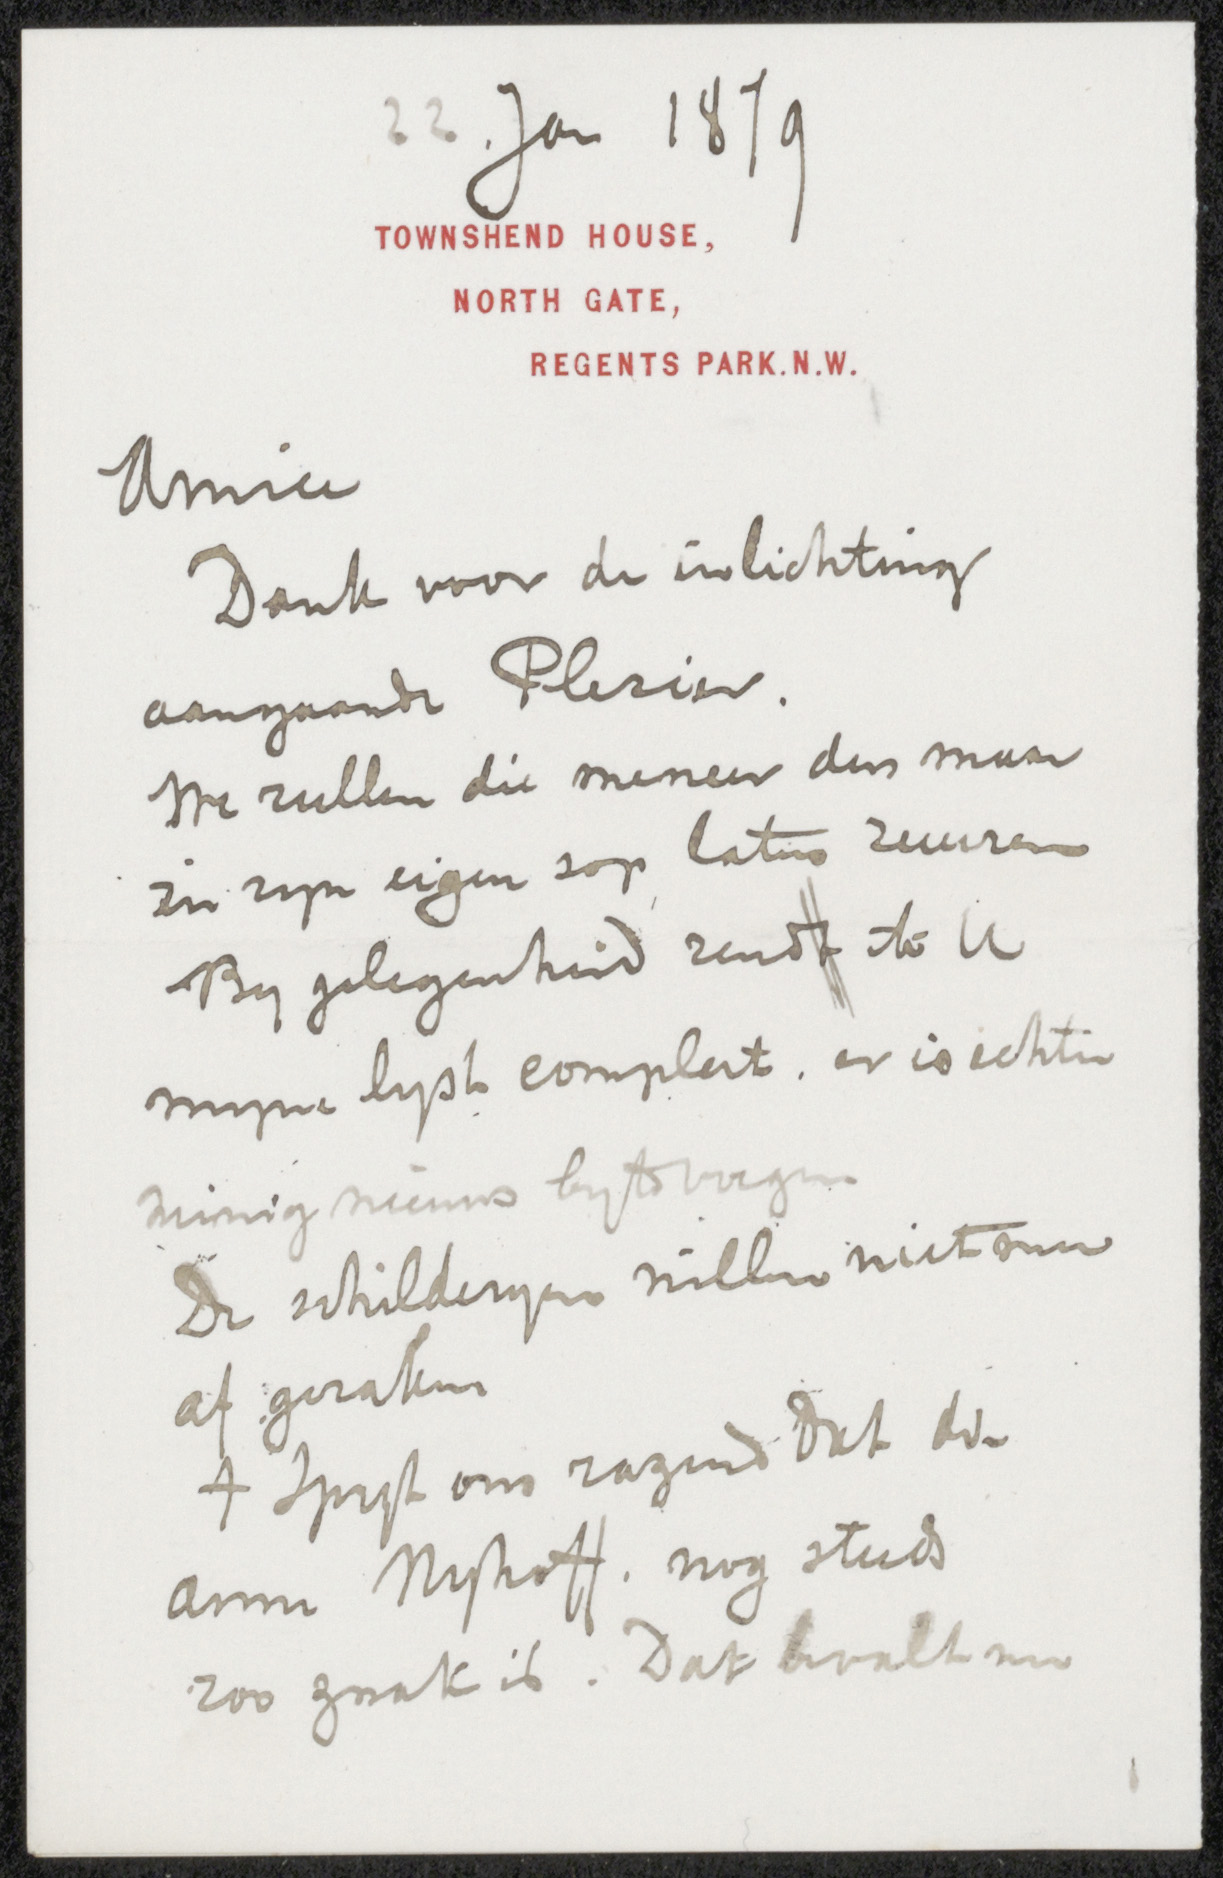 22. Jan 1879
TOWNSHEND HOUSE,
NORTH GATE,
REGENTS PARK.N.W.
Amice
Dank voor de inlichting
aangaande Plezier.
We zullen die meneer dan maar
in zyn eigen sop laten
By gelegenheid zend ik U
myne lyst compleet. er is echter
weinig nieuws by te voegen
De schilderyen willen niet
af geraken
t Spyt ons razend Dat die
arme Nyhoff. nog steeds
zoo zwak is. Dat bevalt me